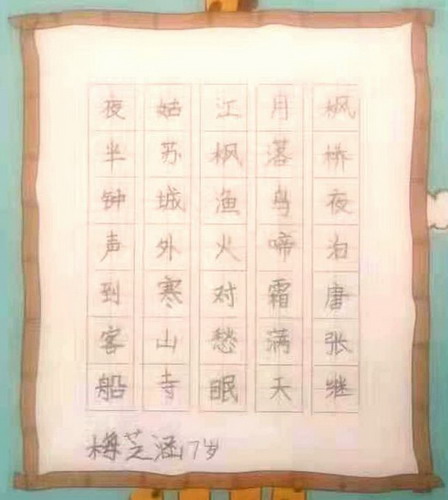 枫桥夜泊唐张继
月落乌啼霜满天
江枫渔火对愁眠
姑苏城外寒山寺
夜半钟声到客船
梅芝涵17岁